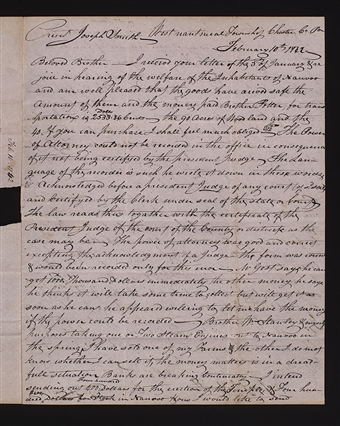 Prest Joseph Smith West nantmeal Township Chester Co Pa
February 10th 1842
Beloved Brother I received your letter of the of January & re
joice in hearing of the welfare of the Inhabitants of Nauvoo
and am well pleased that the goods have arived safe the
amount of them and the money paid Brother Potter for trans
portation is the goods of Woodland and the
if you can purchase I shall feel much obliged The Power
of Attorney could not be recorded in the office in consequence
of it not being certified by the president Judge The Lan
guage of the recorder is such he wrote it down in these words
Acknowledged before a president Judge of any court of
and Certified by the clerk under seal of the state or county
the law reads thus together with the certificate of the
President Judge of the court of the County or district as the
case may be. The power of attorney was good and correct
excepting the acknowledgment of a Judge the form was correct
& would been recorded only for this error says he can
get Thousand Dollars immediately the other money he says
he thinks it will take some time to collect but will get it as
soon as he can he appeared willing to let me have the money
if the power could be recorded Brother
in taking one or Two Steam Engines out to Nauvoo in
the spring I have sold one of my Farms & the other I do not
know whether I can sell it, the money matters is in a dread
full situation Banks are breaking continually I intend
sending out Dollars for the erection of the Temple & Four hun
dred Dollars for Stock in Nauvoo House I would like to send